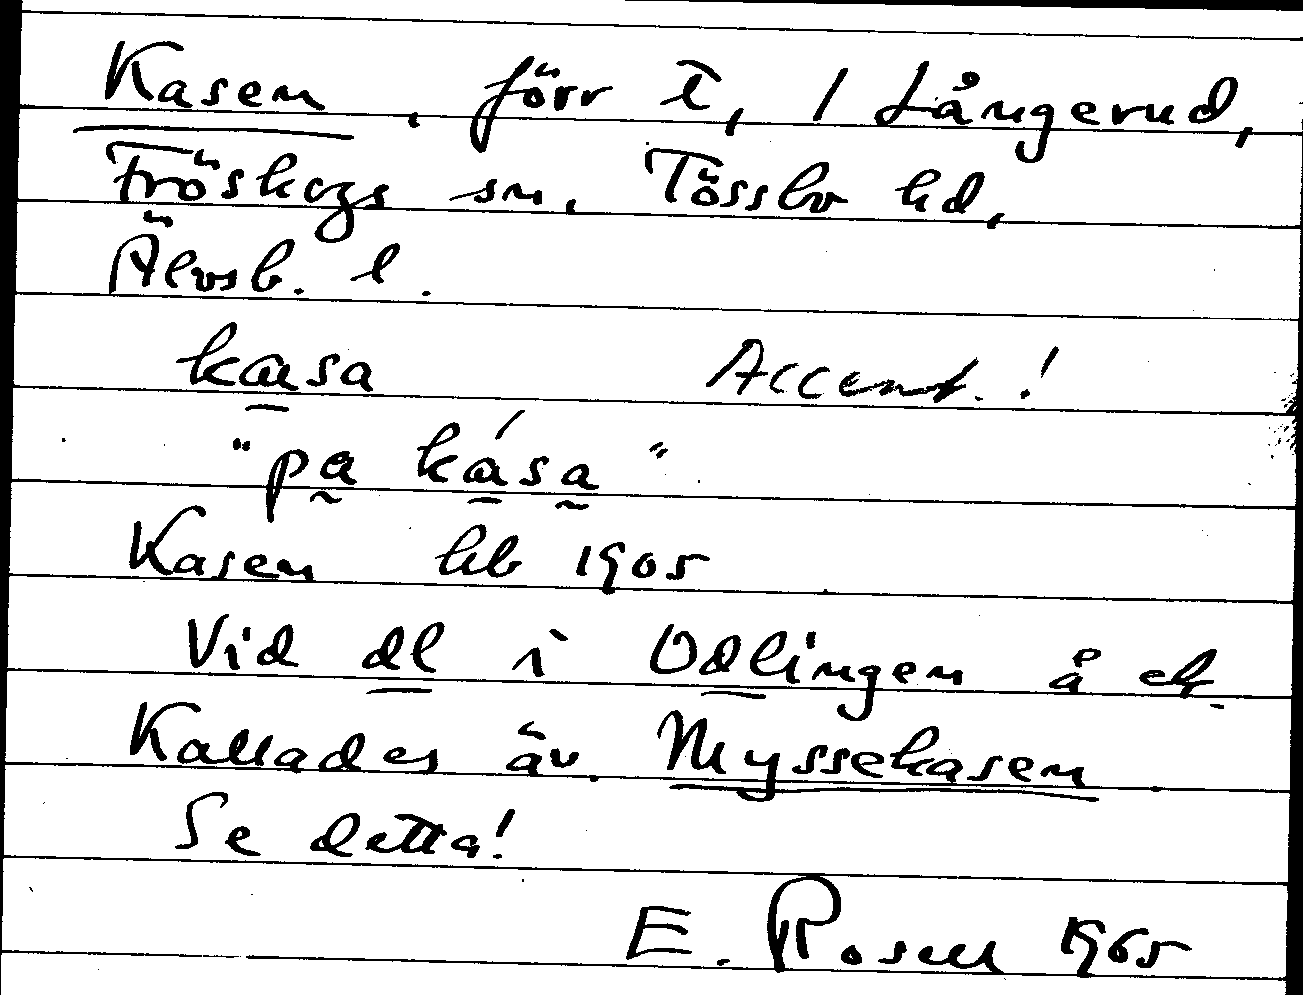 Kasen, förr t, 1 Långerud,
Fröskogs sn, Tössbo hd,
Älvsb. l.
kasa Accent.!
"pa kása"
Kasen hb 1905
Vid dl i Odlingen å ek.
Kallades äv. Myssekasen
Se detta!
E. Rosell 1965